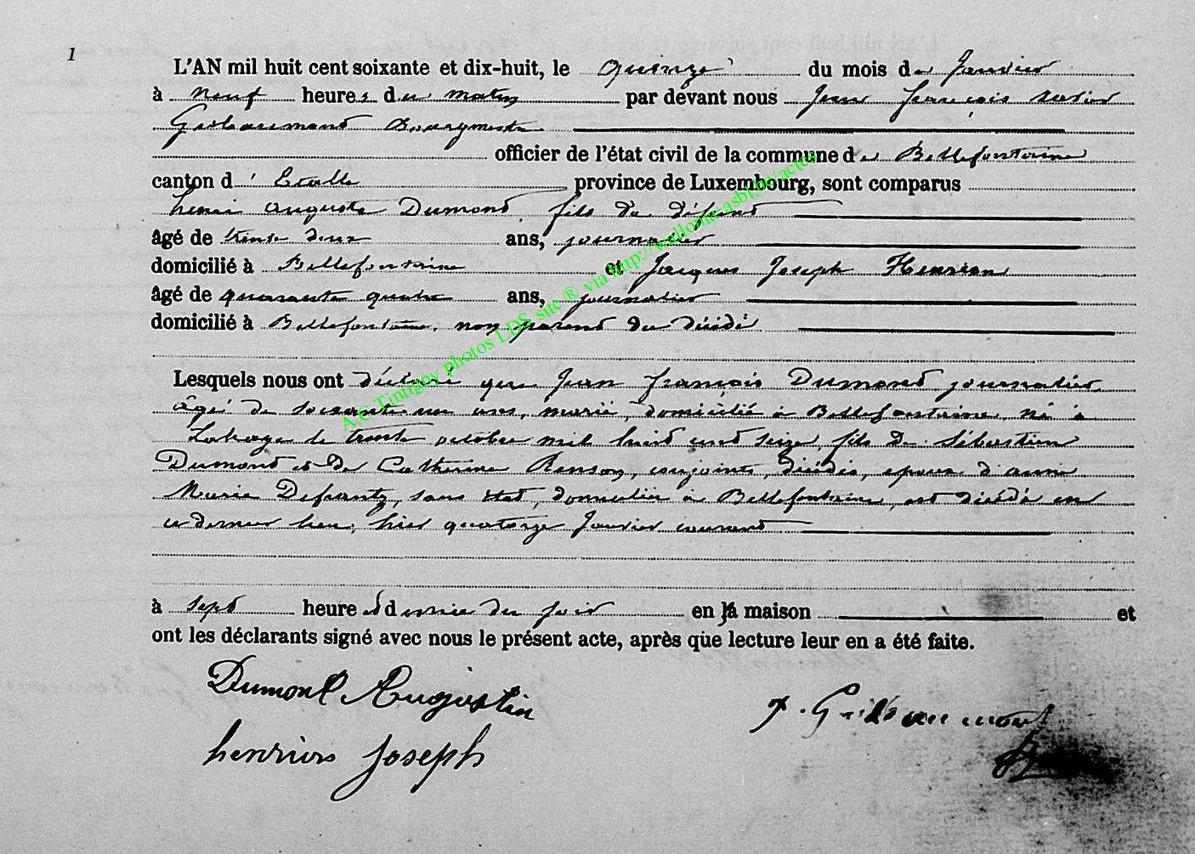 1
L'AN mil huit cent soixante et dix-huit, le quinze du mois de Janvier
à neuf heures du matin par devant nous Jean françois
Bourgmestre
officier de l'état civil de la commune de Bellefontaine
canton d'Etalle province de Luxembourg, sont comparus
henri auguste Dumond, fils du défunt
âgé de trente deux ans, journalier
domicilié à Bellefontaine et Jacques Joseph Henrion
âgé de quarante quatre ans, journalier
domicilié à Bellefontaine, non parent du décédé
Lesquels nous ont déclaré que Jean françois Dumond journalier
âgé de soixante un ans, marié, domicilié à Bellefontaine, né à
Lahage le trente octobre mil huit cent seize, fils de Sébastien
Dumond et de Catherine Ranson, conjoints, décédés, époux d'anne
Marie Defrantz, sans état, domiciliée à Bellefontaine, est décédé en
ce dernier lieu, hier quatorze Janvier courant
à sept heures du soir en sa maison et
ont les déclarants signé avec nous le présent acte, après que lecture leur en a été faite.
Dumont Augustin
henrion Joseph
AtG Tintigny photos LDS site ® via http://wallonia-asbl.be/actes